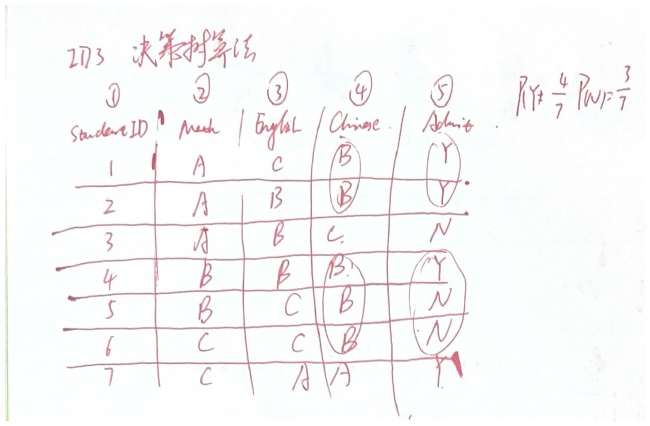 ID3 决策树算法
① ② ③ ④ ⑤
P(Y)= 4/7 P(N)= 3/7
Student ID Math English Chinese Admit
1 A C B Y
2 A B B Y
3 A B C N
4 B B B Y
5 B C B N
6 C C B N
7 C A A Y